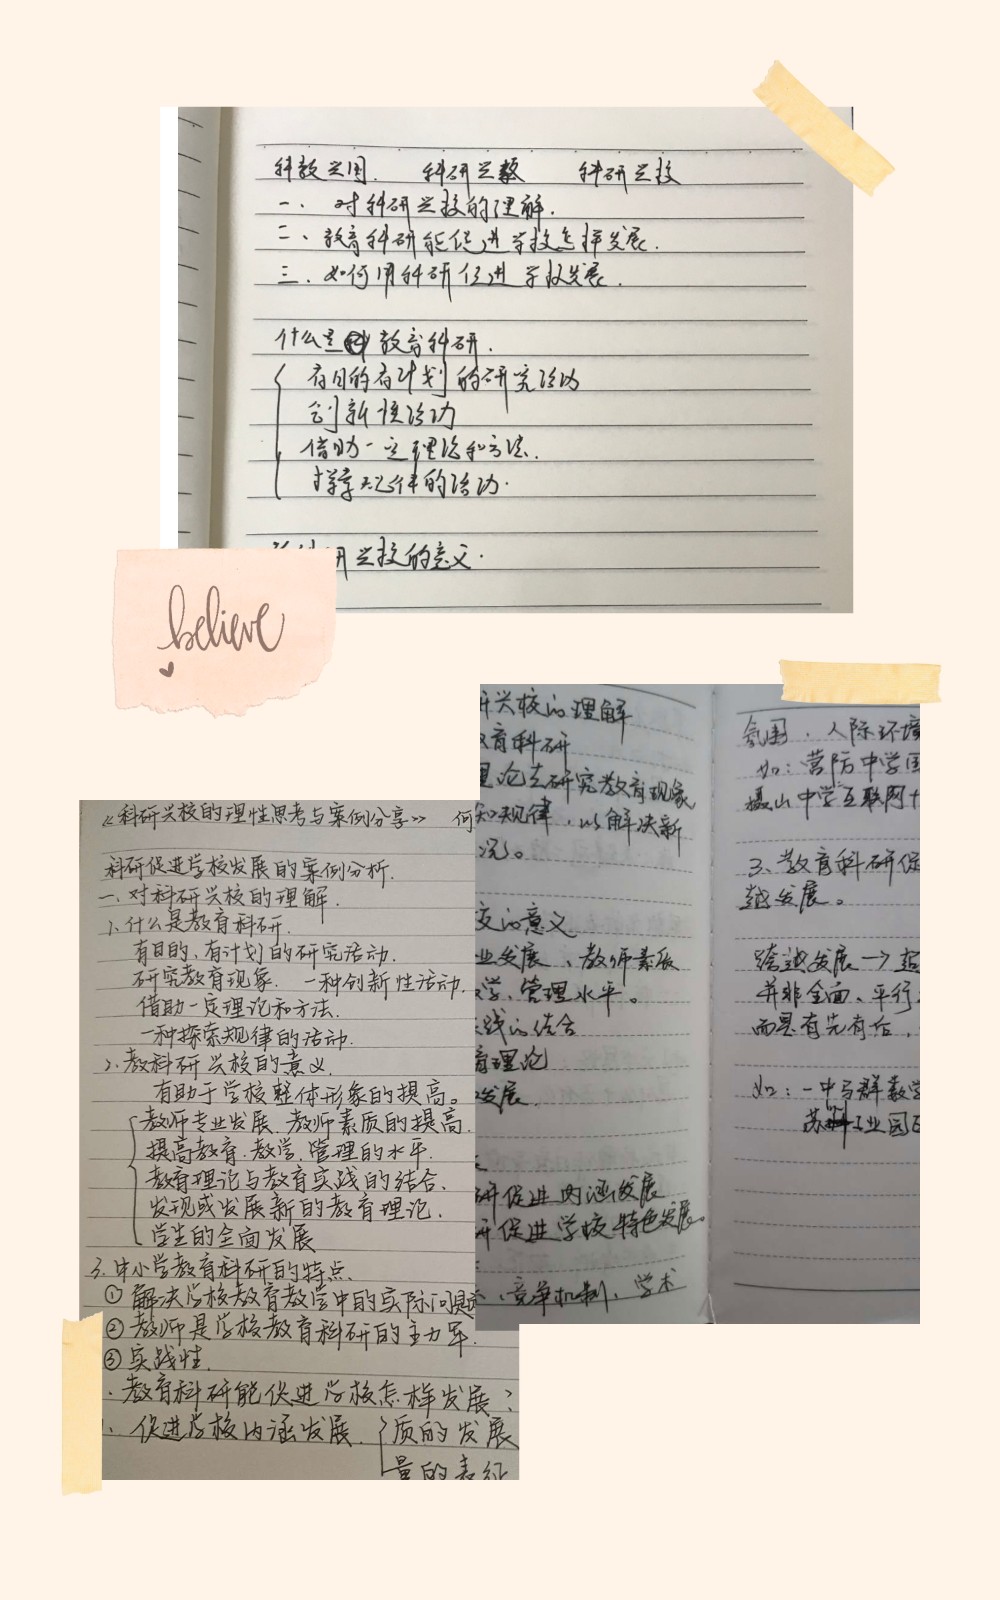 科教兴国. 科研兴教 科研兴校
一、对科研兴校的理解.
二、教育科研能促进学校怎样发展.
三、如何用科研促进学校发展.
什么是教育科研.
有目的有计划的研究活动
创新性活动
借助一定理论和方法.
探索规律的活动.
研兴校的意义.
believe
《科研兴校的理性思考与案例分享》 何
科研促进学校发展的案例分析.
一、对科研兴校的理解.
1、什么是教育科研.
有目的、有计划的研究活动.
研究教育现象. 一种创新性活动.
借助一定理论和方法.
一种探索规律的活动.
2、教科研兴校的意义.
有助于学校整体形象的提高。
教师专业发展、教师素质的提高.
提高教育.教学.管理的水平.
教育理论与教育实践的结合、
发现或发展新的教育理论.
学生的全面发展
3.中小学教育科研的特点、
①解决学校教育教学中的实际问题
②教师是学校教育科研的主力军.
③实践性.
、教育科研能促进学校怎样发展?
、促进学校内涵发展. 质的发展
量的表征
兴校的理解
育科研
论去研究教育现象
规律,以解决新
况。
的意义
业发展、教师素质
学、管理水平。
践的结合
育理论
发展
研促进内涵发展
研促进学校特色发展。
、竞争机制、学术
氛围、人际环境
如:营防中学
摄山中学互联网+
3、教育科研促
越发展。
跨越发展→超
并非全面、平行
而是有先有后,
如:一中与群数学
苏州工业园区